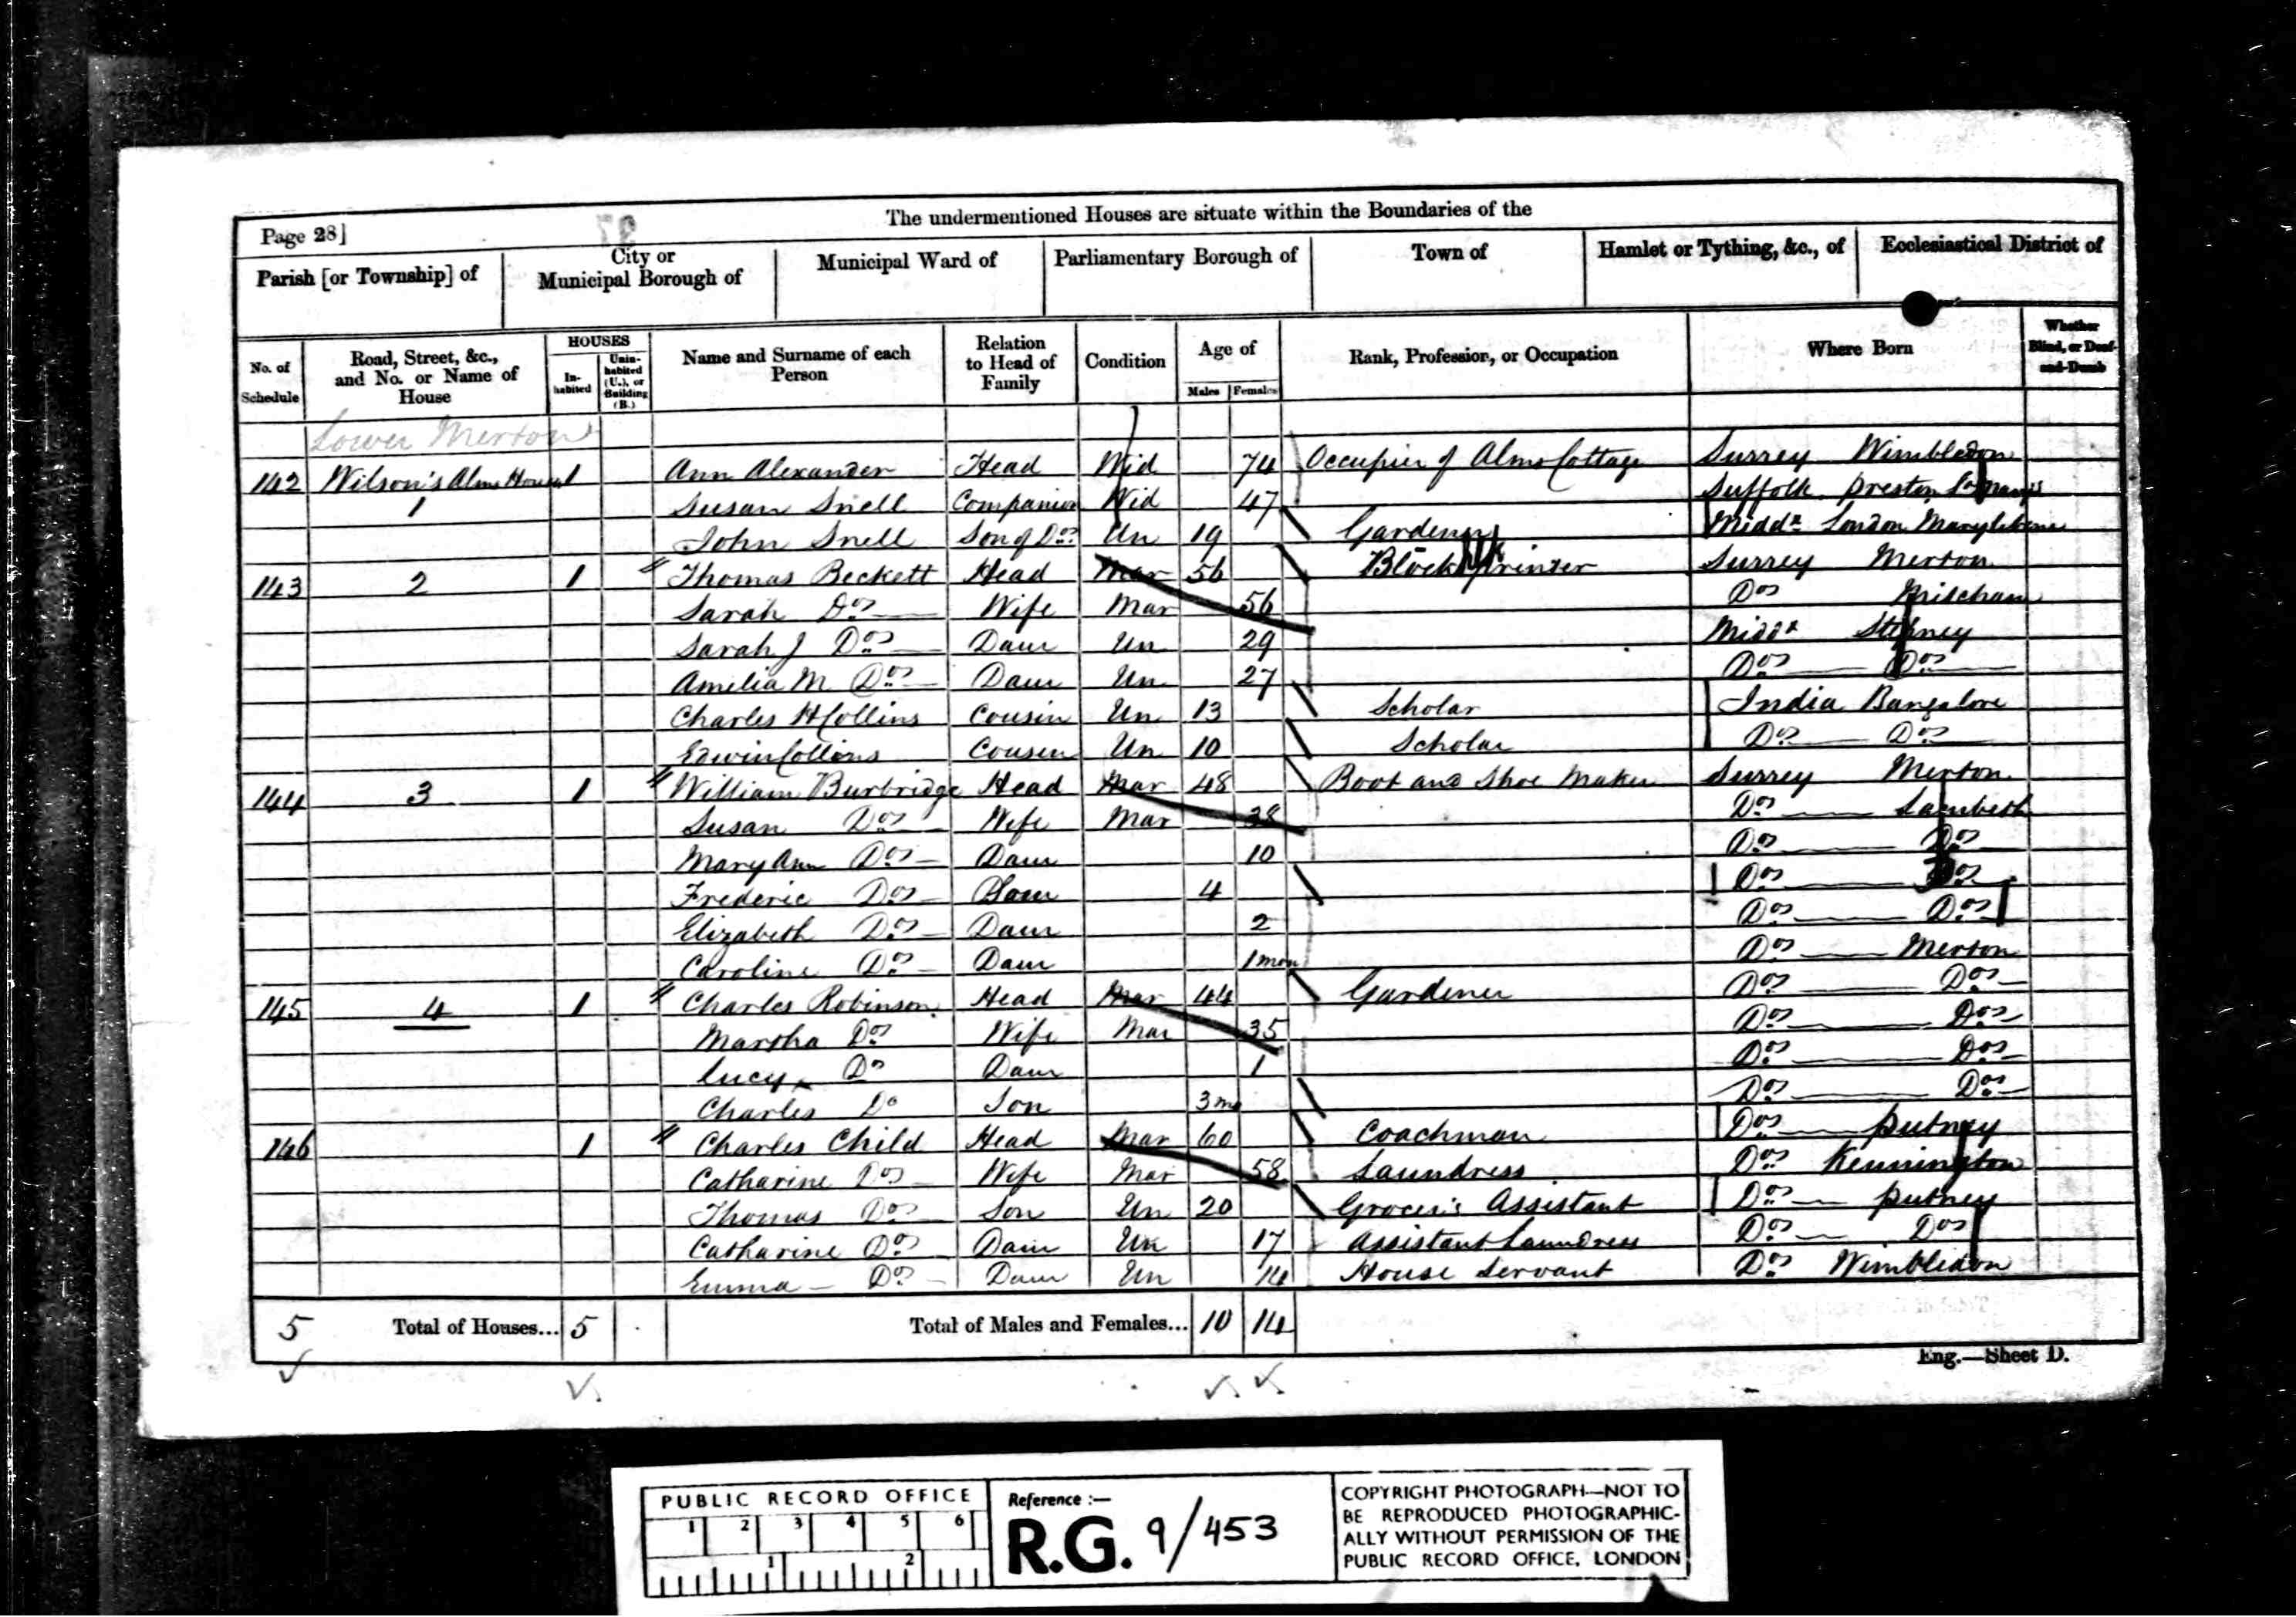 The undermentioned Houses are situate within the Boundaries of the
Page 28]
Parish [or Township] of City or Municipal Borough of Municipal Ward of Parliamentary Borough of Town of Hamlet or Tything, &c., of Ecclesiastical District of
No. of Schedule Road, Street, &c., and No. or Name of House HOUSES Inhabited Uninhabited (U.), or Building (B.) Name and Surname of each Person Relation to Head of Family Condition Age of Males Females Rank, Profession, or Occupation Where Born Whether Blind, or Deaf-and-Dumb
Lower Merton
142 Wilson's Alms Houses 1 Ann Alexander Head Wid 74 Occupier of Alms Cottage Surrey Wimbledon
1 Susan Snell Companion Wid 47 Suffolk Preston St Marys
John Snell Son of Do 19 Un Gardener Middx London Marylebone
143 2 1 Thomas Beckett Head Mar 56 Block Printer Surrey Merton
Sarah Do Wife Mar 56 Do Mitcham
Sarah J Do Daur Un 29 Middx Stepney
Amelia M Do Daur Un 27 Do Do
Charles H Collins Cousin Un 13 Scholar India Bangalore
Edwin Collins Cousin Un 10 Scholar Do Do
144 3 1 William Burbridge Head Mar 48 Boot and Shoe Maker Surrey Merton
Susan Do Wife Mar 38 Do Lambeth
Mary Ann Do Daur 10 Do Do
Frederic Do 4 Do Do
Elizabeth Do Daur 2 Do Do
Caroline Do Daur 1 mon Do Merton
145 4 1 Charles Robinson Head Mar 44 Gardener Do Do
Martha Do Wife Mar 35 Do Do
Lucy Do Daur 1 Do Do
Charles Do Son 3 mo Do Do
146 1 Charles Child Head Mar 60 Coachman Do Putney
Catharine Do Wife Mar 58 Laundress Do Kennington
Thomas Do Son Un 20 Grocer's Assistant Do Putney
Catharine Do Daur Un 17 Assistant Laundress Do Do
Emma Do Daur Un 14 House Servant Do Wimbledon
5 Total of Houses... 5 Total of Males and Females... 10 14
Eng.—Sheet D.
PUBLIC RECORD OFFICE
1 2 3 4 5 6
1 2
Reference :—
R.G. 9/453
COPYRIGHT PHOTOGRAPH—NOT TO
BE REPRODUCED PHOTOGRAPHIC-
ALLY WITHOUT PERMISSION OF THE
PUBLIC RECORD OFFICE, LONDON